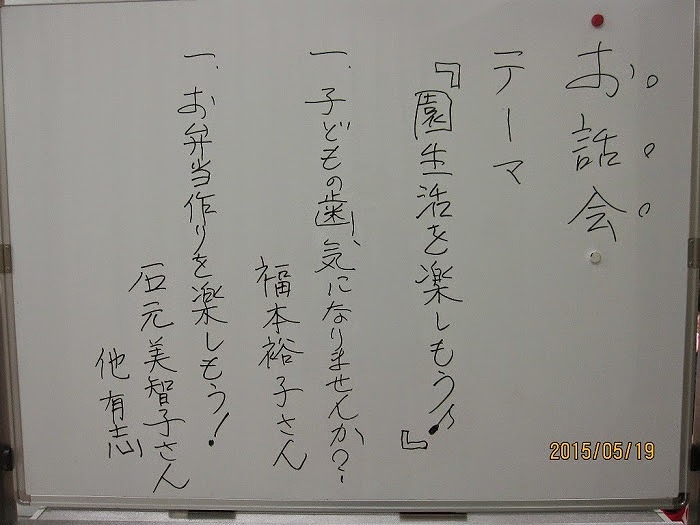 お話会
テーマ
『園生活を楽しもう!!』
一、子どもの歯、気になりませんか?
福本裕子さん
一、お弁当作りを楽しもう!
石元美智子さん
他有志
2015/05/19